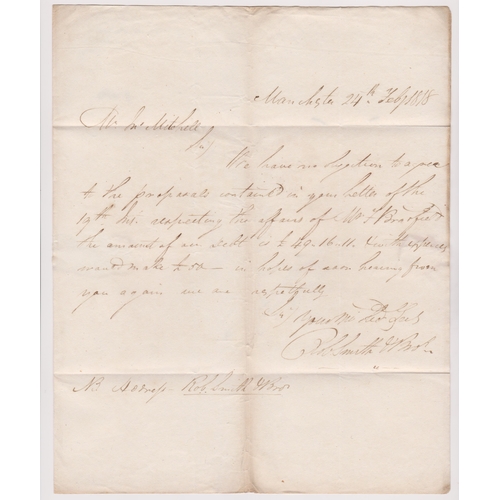 Manchester 24th Feby 1818
Mr Jno Mitchell
Sir
We have no objection to agree
to the proposals contain'd in your letter of the
19th Inst. respecting the affairs of Mr
the amount of our debt is £49.16.11
would make — in hopes of soon hearing from
you again we are respectfully
Sir Your Mo. Obt.
Robt. Smith & Bros.
NB Address Robt. Smith & Bros